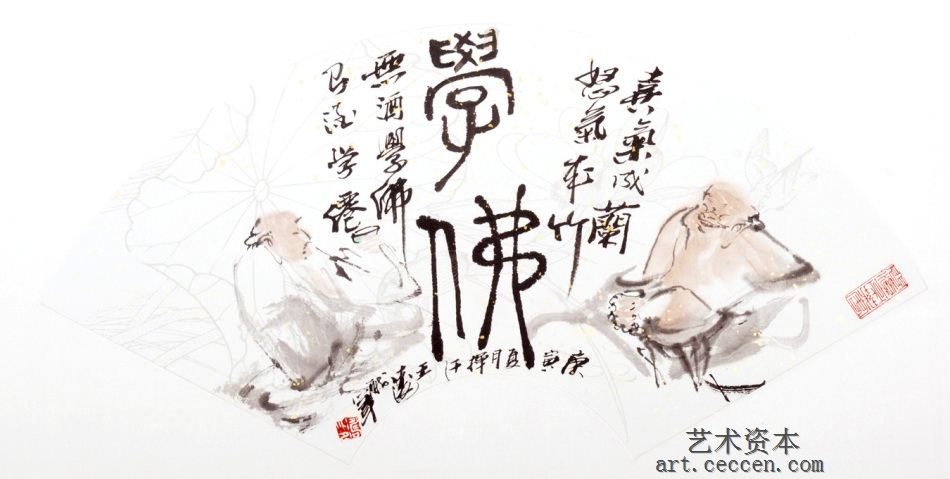 喜氣成蘭
怒氣竹
學佛
無酒學佛
酒學僊
庚寅夏月揮汗王濤
艺术资本
art.ceccen.com